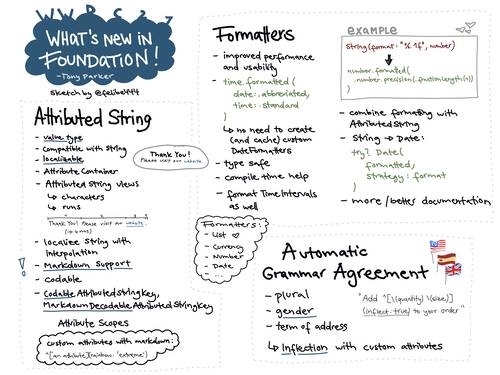 WWDC21
WHAT'S NEW IN
FOUNDATION!
-Tony Parker
sketch by @felibe444
Attributed String
- value type
- Compatible with String
- localizable
- Attribute Container
- Attributed String views
↳ characters
↳ runs
Thank You! Please visit our website.
- localize String with
interpolation
! - Markdown Support
- codable
- CodableAttributedStringKey,
MarkdownDecodableAttributedStringKey
Attribute Scopes
custom attributes with markdown:
^[an attribute](rainbow: 'extreme')
Thank You!
Please visit our website.
Formatters
- improved performance
and usability
- time.formatted(
date: .abbreviated,
time: .standard
)
↳ no need to create
(and cache) custom
DateFormatters
- type safe
- compile time help
- format TimeIntervals
as well
Formatters:
- List
- Currency
- Number
- Date
- ...
example
String(format: "%.1f", number)
number.formatted(
.number.precision(.fractionLength(1))
)
- combine formatting with
AttributedString
- String → Date:
try? Date(
formatted,
strategy: format
)
- more/better documentation
Automatic
Grammar Agreement
- plural
- gender
- term of address
↳ Inflection with custom attributes
"Add ^[\(quantity) \(size)]
(inflect: true) to your order"